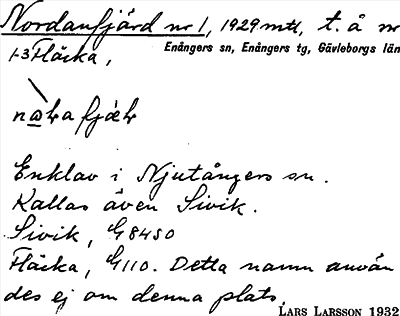 Nordanfjärd nr 1, 1929 mtl, t. å nr
1-3 Fläcka,
Enångers sn, Enångers tg, Gävleborgs län
Enklav i Njutångers sn.
Kallas även Sivik.
Sivik, G8450
Fläcka, G110. Detta namn använ
des ej om denna plats.
LARS LARSSON 1932